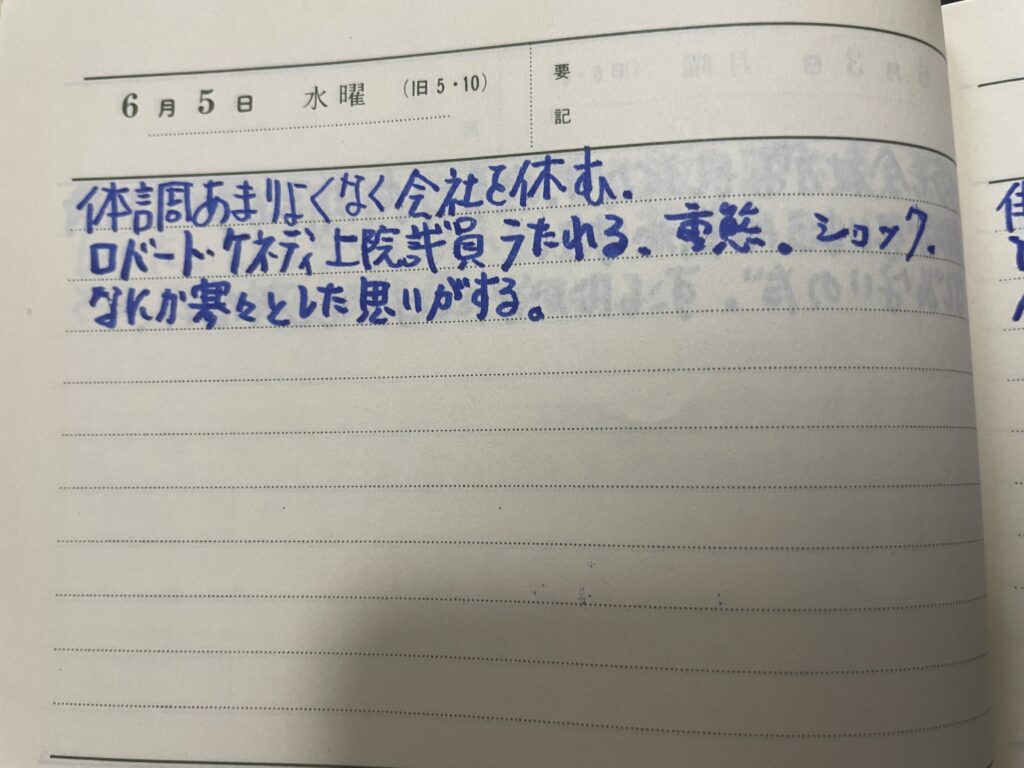 6月5日 水曜 (旧5・10)
要記
体調あまりよくなく会社を休む.
ロバート・ケネディ上院議員うたれる。重態。ショック.
なにか寒々とした思いがする。